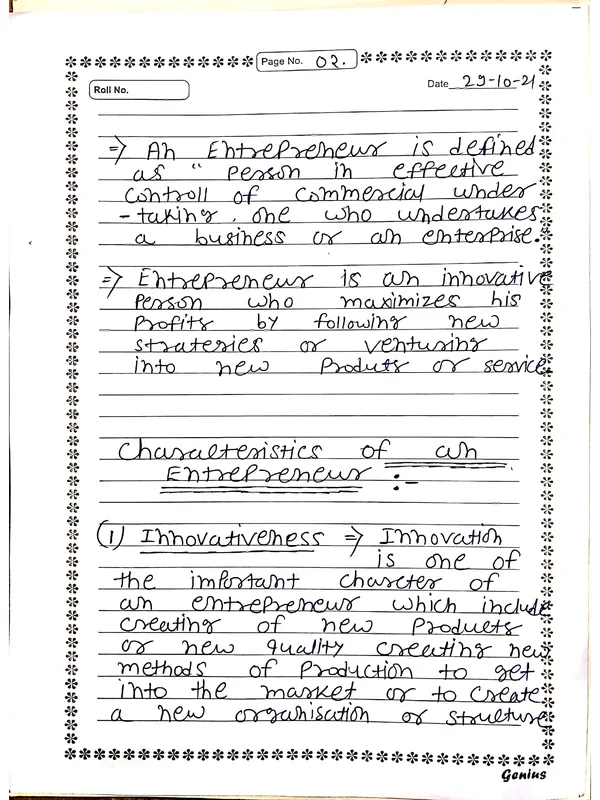 Page No. 02.
Roll No.
Date 29-10-21
=> An Entrepreneur is defined
as " Person in effective
Controll of commercial under
- taking, one who undertakes
a business or an enterprise."
=> Entrepreneur is an innovative
Person who maximizes his
Profits by following new
strategies or venturing
into new Products or service.
Characteristics of an
Entrepreneur :-
(1) Innovativeness => Innovation
is one of
the important character of
an entrepreneur which include
creating of new Products
or new quality creating new
methods of Production to get
into the market or to create
a new organisation or structure
Genius